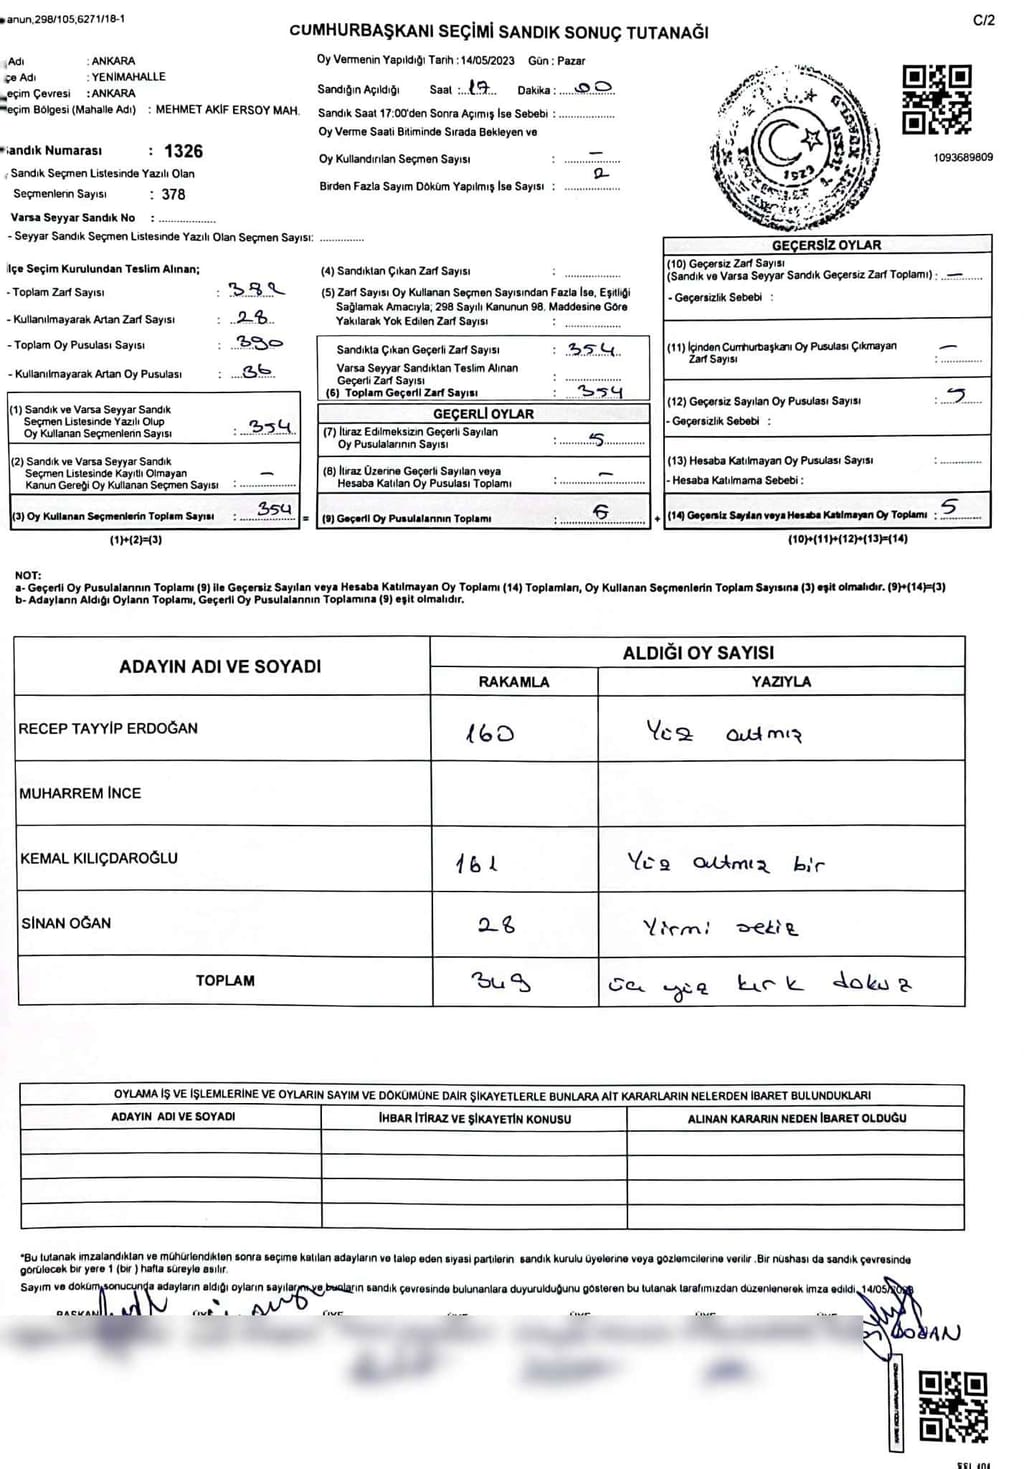 anun,298/105,6271/18-1
C/2
CUMHURBAŞKANI SEÇİMİ SANDIK SONUÇ TUTANAĞI
Adı : ANKARA
çe Adı : YENİMAHALLE
eçim Çevresi : ANKARA
eçim Bölgesi (Mahalle Adı) : MEHMET AKİF ERSOY MAH.
andık Numarası : 1326
Sandık Seçmen Listesinde Yazılı Olan
Seçmenlerin Sayısı : 378
Varsa Seyyar Sandık No : ..................
- Seyyar Sandık Seçmen Listesinde Yazılı Olan Seçmen Sayısı: ..............
Oy Vermenin Yapıldığı Tarih : 14/05/2023 Gün : Pazar
Sandığın Açıldığı Saat : 17 Dakika : 00
Sandık Saat 17:00'den Sonra Açımış İse Sebebi : ..................
Oy Verme Saati Bitiminde Sırada Bekleyen ve
Oy Kullandırılan Seçmen Sayısı : –
Birden Fazla Sayım Döküm Yapılmış İse Sayısı : 2
1923
1093689809
İlçe Seçim Kurulundan Teslim Alınan;
- Toplam Zarf Sayısı : 382
- Kullanılmayarak Artan Zarf Sayısı : 28
- Toplam Oy Pusulası Sayısı : 390
- Kullanılmayarak Artan Oy Pusulası : 36
(1) Sandık ve Varsa Seyyar Sandık
Seçmen Listesinde Yazılı Olup
Oy Kullanan Seçmenlerin Sayısı : 354
(2) Sandık ve Varsa Seyyar Sandık
Seçmen Listesinde Kayıtlı Olmayan
Kanun Gereği Oy Kullanan Seçmen Sayısı : –
(3) Oy Kullanan Seçmenlerin Toplam Sayısı : 354 =
(1)+(2)=(3)
(4) Sandıktan Çıkan Zarf Sayısı : ..............
(5) Zarf Sayısı Oy Kullanan Seçmen Sayısından Fazla İse, Eşitliği
Sağlamak Amacıyla; 298 Sayılı Kanunun 98. Maddesine Göre
Yakılarak Yok Edilen Zarf Sayısı : ..............
Sandıkta Çıkan Geçerli Zarf Sayısı : 354
Varsa Seyyar Sandıktan Teslim Alınan
Geçerli Zarf Sayısı : ..............
(6) Toplam Geçerli Zarf Sayısı : 354
GEÇERLİ OYLAR
(7) İtiraz Edilmeksizin Geçerli Sayılan
Oy Pusulalarının Sayısı : 5
(8) İtiraz Üzerine Geçerli Sayılan veya
Hesaba Katılan Oy Pusulası Toplamı : –
(9) Geçerli Oy Pusulalarının Toplamı : +
GEÇERSİZ OYLAR
(10) Geçersiz Zarf Sayısı
(Sandık ve Varsa Seyyar Sandık Geçersiz Zarf Toplamı) : –
- Geçersizlik Sebebi :
(11) İçinden Cumhurbaşkanı Oy Pusulası Çıkmayan
Zarf Sayısı : –
(12) Geçersiz Sayılan Oy Pusulası Sayısı : 5
- Geçersizlik Sebebi :
(13) Hesaba Katılmayan Oy Pusulası Sayısı : ..............
- Hesaba Katılmama Sebebi :
(14) Geçersiz Sayılan veya Hesaba Katılmayan Oy Toplamı : 5
(10)+(11)+(12)+(13)=(14)
NOT:
a- Geçerli Oy Pusulalarının Toplamı (9) ile Geçersiz Sayılan veya Hesaba Katılmayan Oy Toplamı (14) Toplamları, Oy Kullanan Seçmenlerin Toplam Sayısına (3) eşit olmalıdır. (9)+(14)=(3)
b- Adayların Aldığı Oyların Toplamı, Geçerli Oy Pusulalarının Toplamına (9) eşit olmalıdır.
ADAYIN ADI VE SOYADI
ALDIĞI OY SAYISI
RAKAMLA YAZIYLA
RECEP TAYYİP ERDOĞAN 160 Yüz altmış
MUHARREM İNCE
KEMAL KILIÇDAROĞLU 161 Yüz altmış bir
SİNAN OĞAN 28 Yirmi sekiz
TOPLAM 349 üç yüz kırk dokuz
OYLAMA İŞ VE İŞLEMLERİNE VE OYLARIN SAYIM VE DÖKÜMÜNE DAİR ŞİKAYETLERLE BUNLARA AİT KARARLARIN NELERDEN İBARET BULUNDUKLARI
ADAYIN ADI VE SOYADI İHBAR İTİRAZ VE ŞİKAYETİN KONUSU ALINAN KARARIN NEDEN İBARET OLDUĞU
*Bu tutanak imzalandıktan ve mühürlendikten sonra seçime katılan adayların ve talep eden siyasi partilerin sandık kurulu üyelerine veya gözlemcilerine verilir .Bir nüshası da sandık çevresinde
görülecek bir yere 1 (bir ) hafta süreyle asılır.
Sayım ve döküm sonucunda adayların aldığı oyların sayılarını ve bunların sandık çevresinde bulunanlara duyurulduğunu gösteren bu tutanak tarafımızdan düzenlenerek imza edildi. 14/05/2023
BAŞKAN
DOĞAN